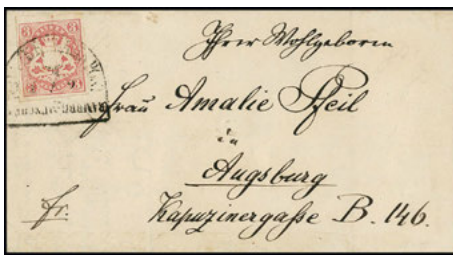 3 3
Ihrer Wohlgeboren
Frau Amalie Pfeil
in
Augsburg
fr. Kapuzinergaße B. 146.